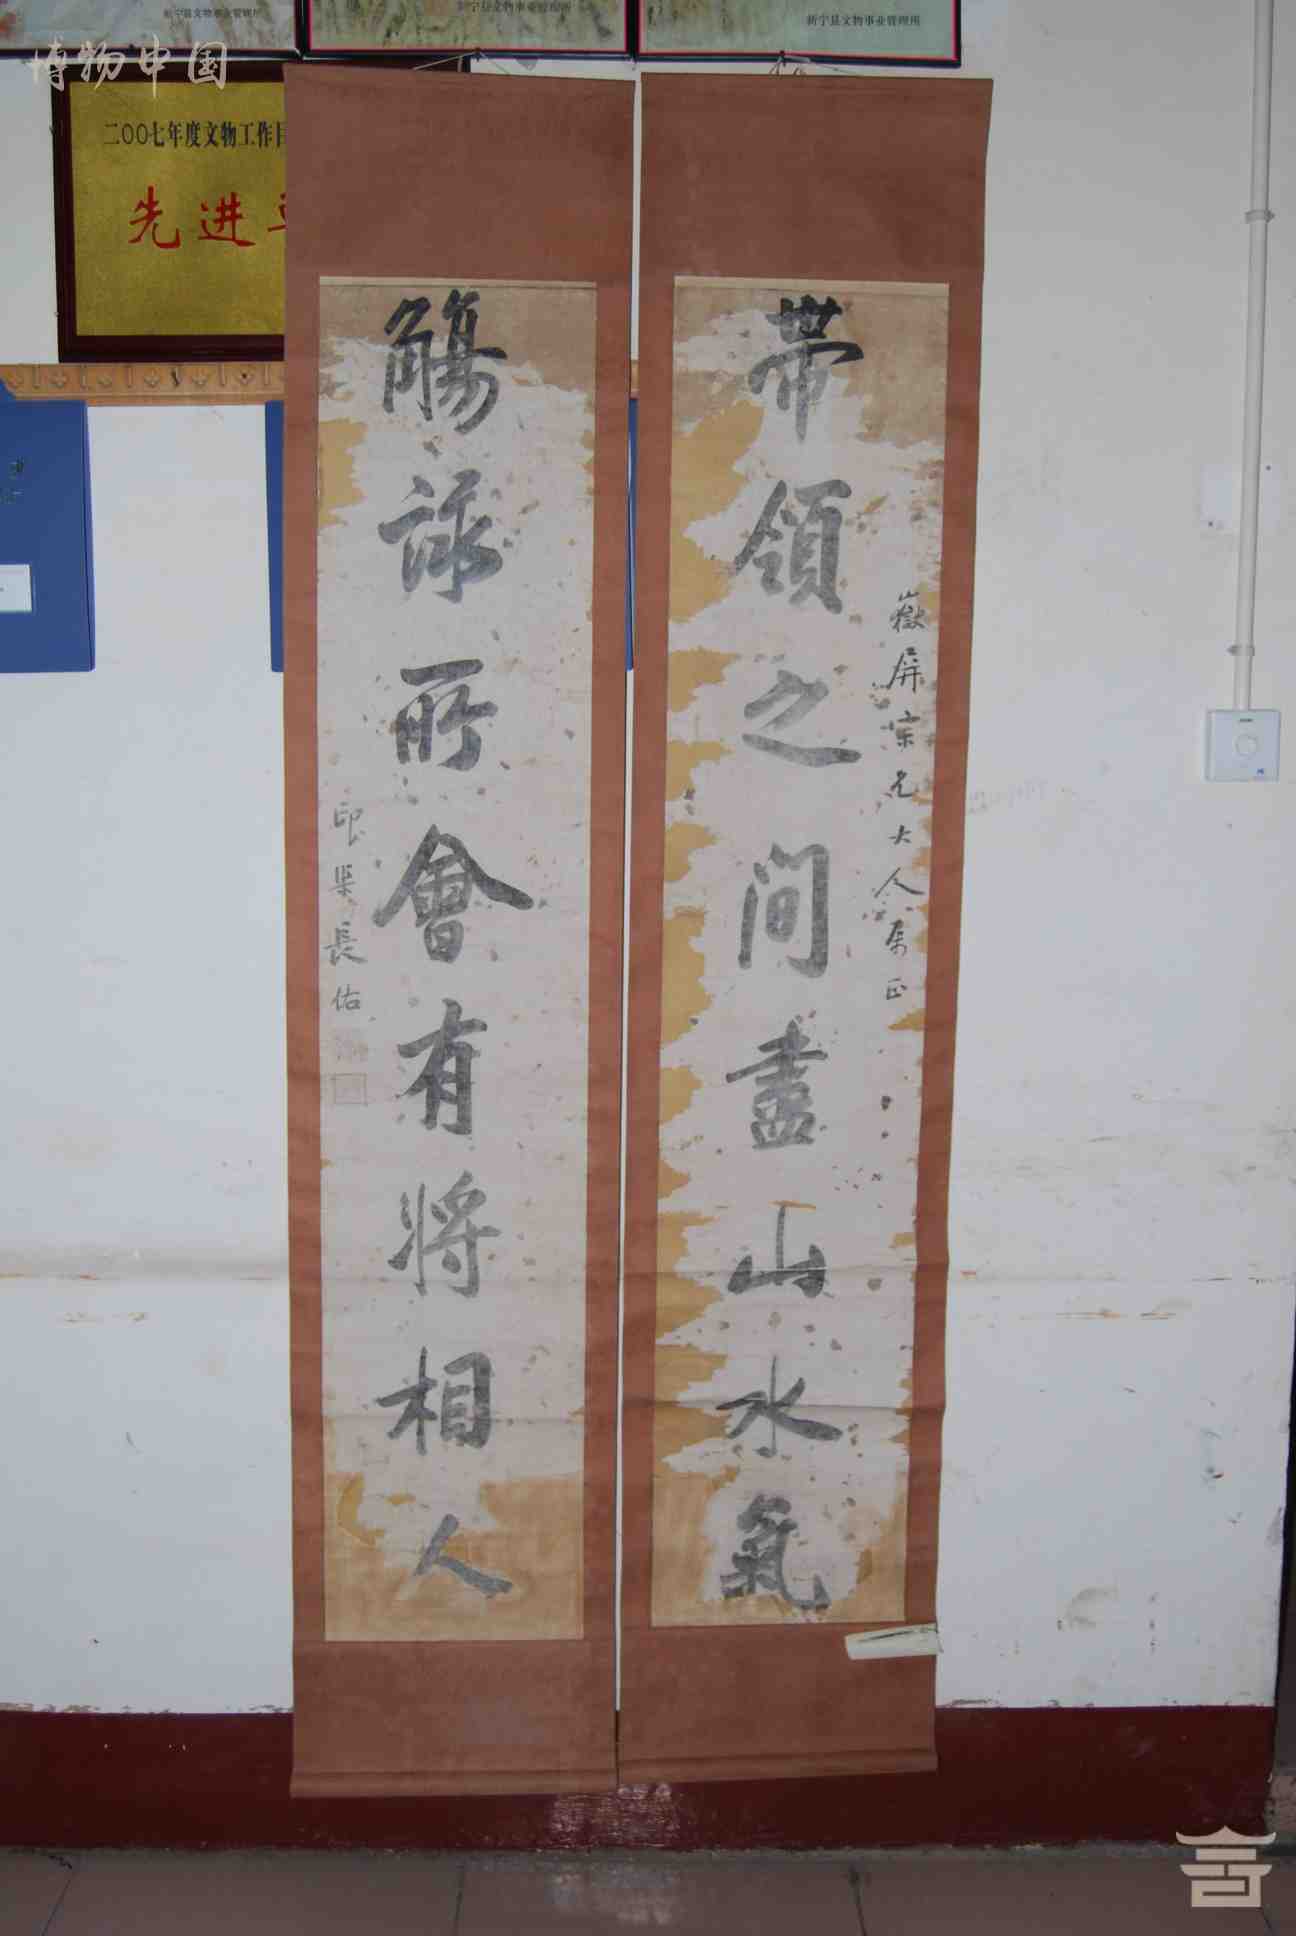 新宁县文物事业管理所
新宁县文物事业管理所
新宁县文物事业管理所
博物中国
二〇〇七年度文物工作目
先进
帶領之間盡山水氣
嶽屏宗兄大人屬正
觴詠所會有將相人
印渠長佑